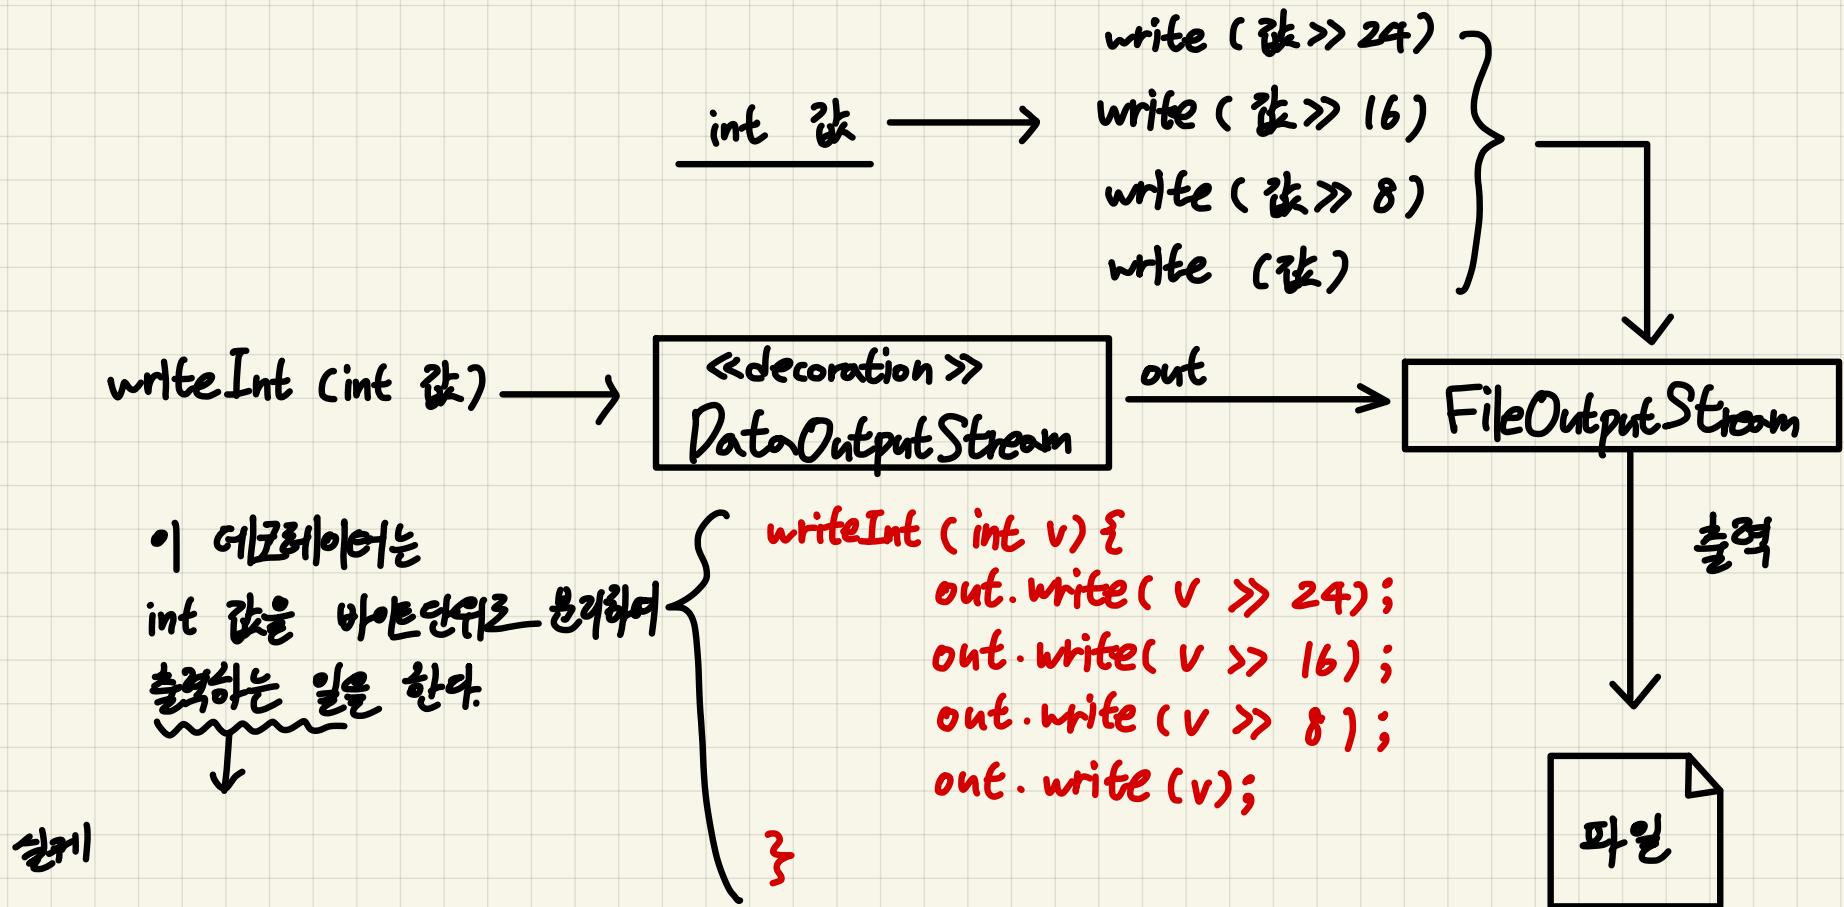 write (값 >> 24)
int 값
write (값 >> 16)
write (값 >> 8)
write (값)
writeInt (int 값)
<<decoration>>
DataOutputStream
out
FileOutputStream
이 데코레이터는
int 값을 바이트단위로 분리하여
출력하는 일을 한다.
writeInt (int v) {
out.write( v >> 24);
out.write( v >> 16);
out.write (v >> 8);
out.write (v);
}
출력
파일
실제